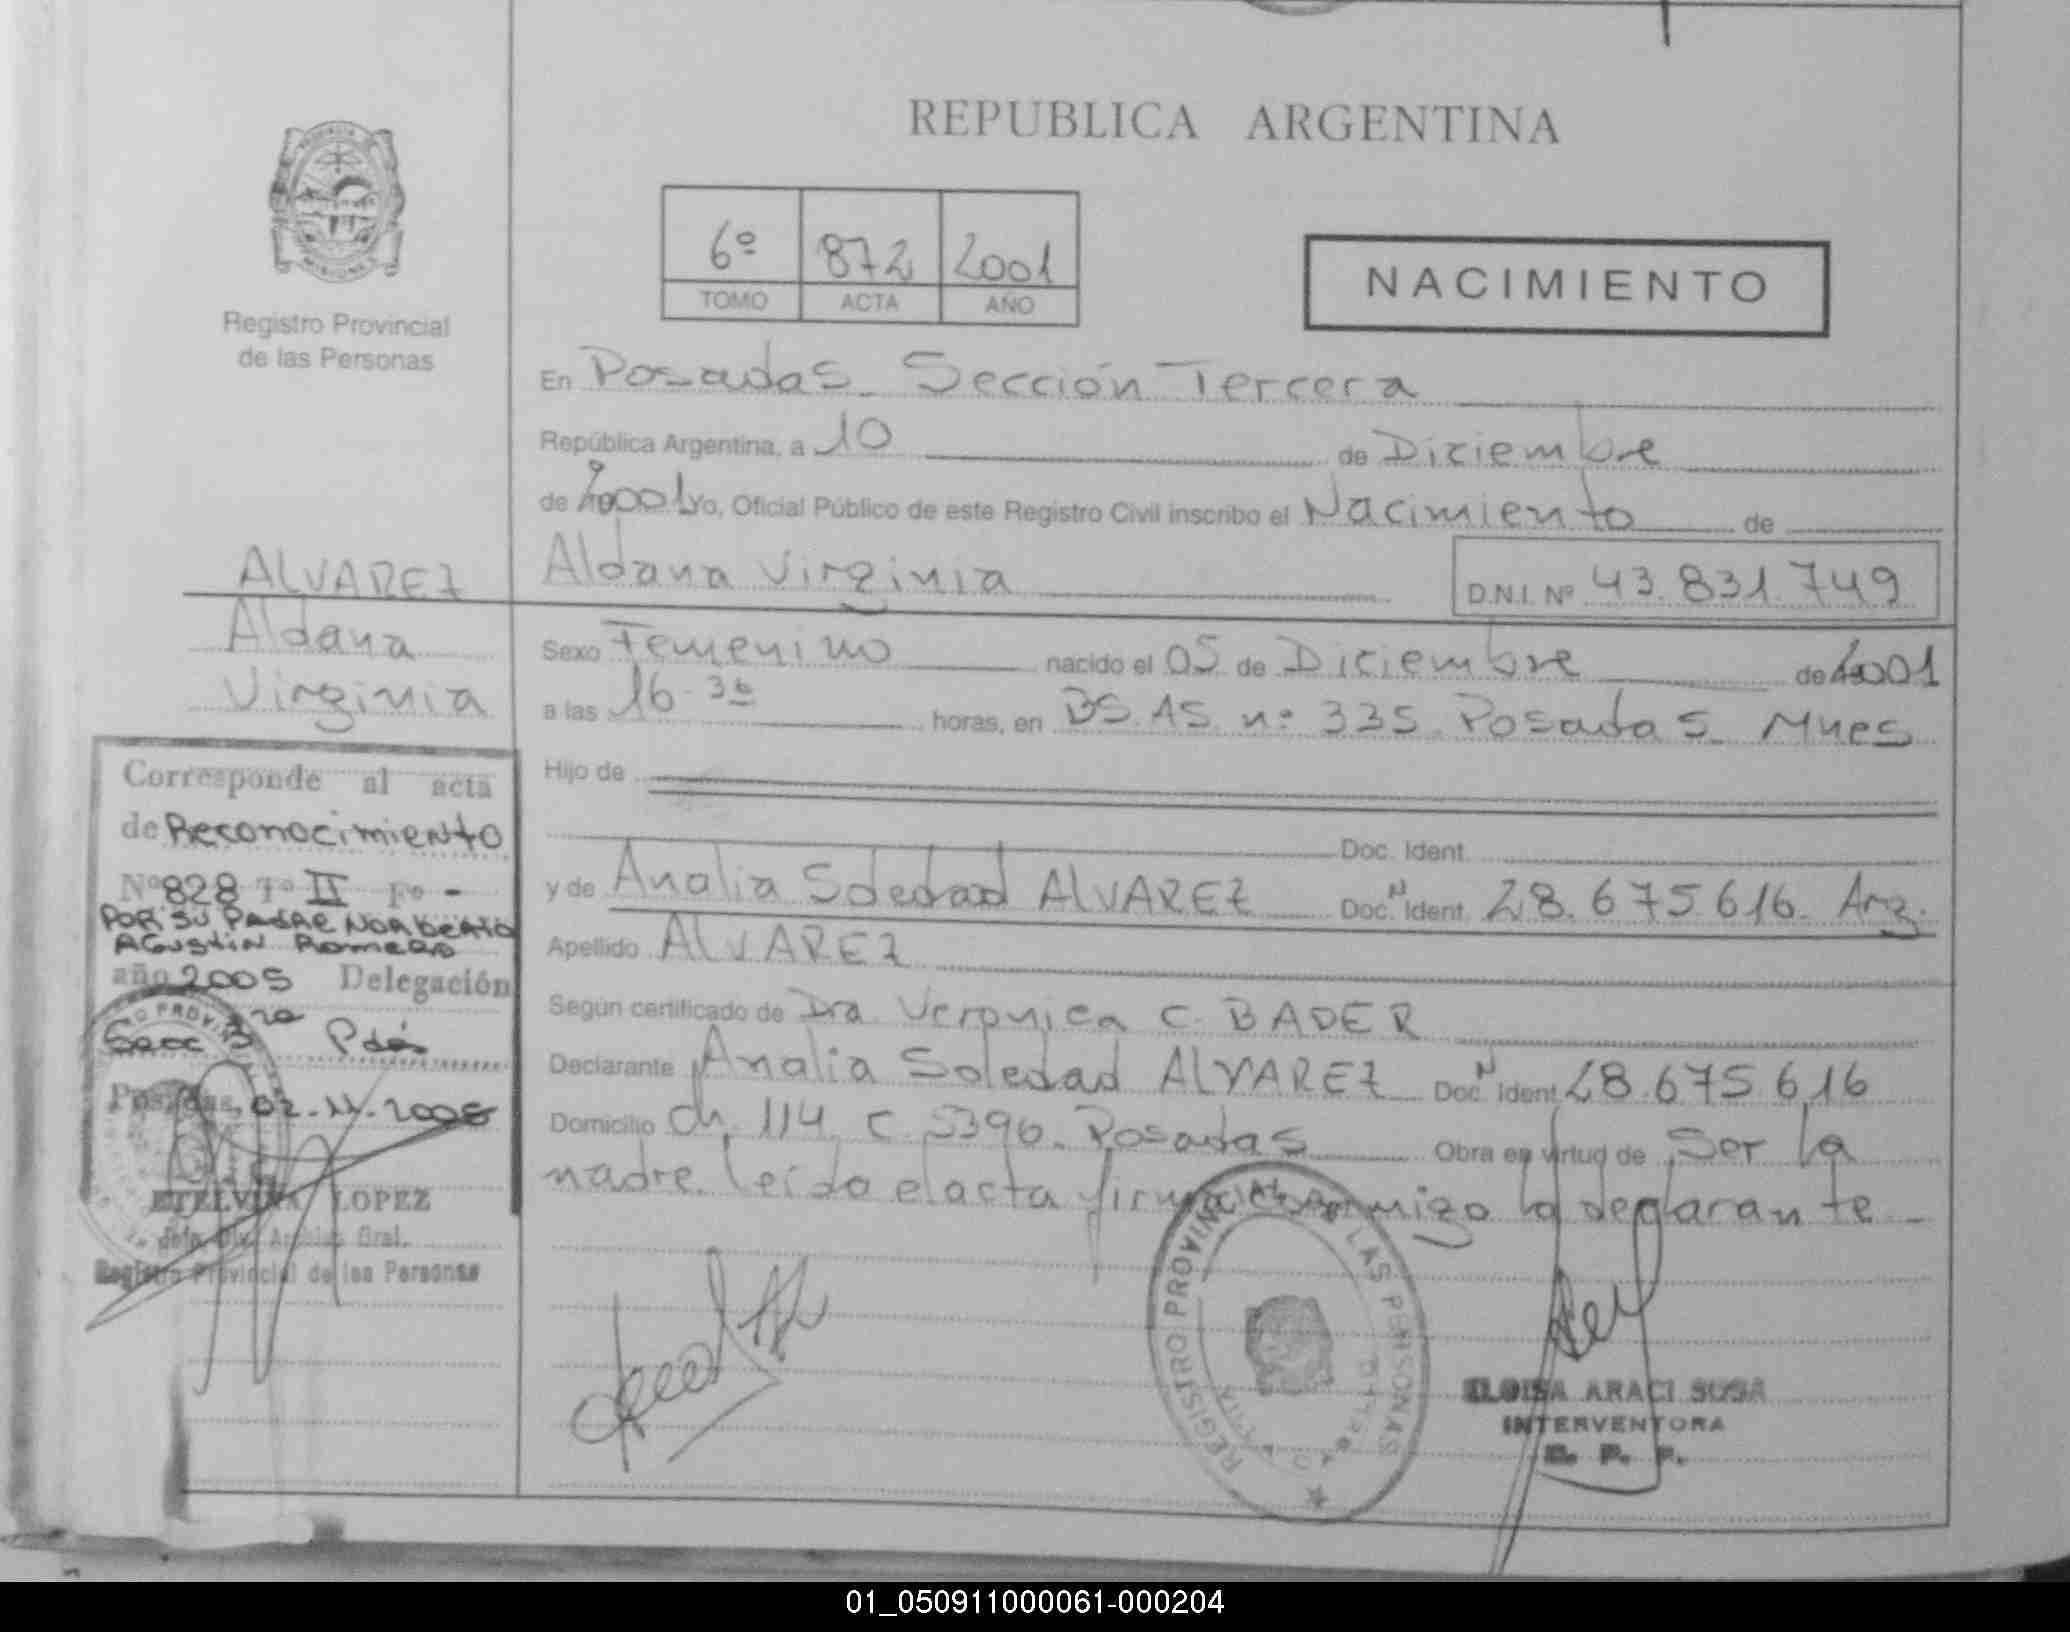 REPUBLICA ARGENTINA
Registro Provincial
de las Personas
6º 872 2001
TOMO ACTA AÑO
NACIMIENTO
En Posadas - Sección Tercera
República Argentina, a 10 de Diciembre
de 2001 Yo, Oficial Público de este Registro Civil inscribo el Nacimiento de
Aldana Virginia D.N.I. Nº 43.831.749
Sexo Femenino nacido el 05 de Diciembre de 2001
a las 16-30 horas, en BS.AS. nº 335. Posadas - Mnes
Hijo de
Doc. Ident.
y de Analia Soledad ALVAREZ Doc. N Ident. 28.675.616. Arg.
Apellido ALVAREZ
Según certificado de Dra. Veronica C. BADER
Declarante Analia Soledad ALVAREZ Doc. N Ident. 28.675.616
Domicilio Ch. 114 C. 5396. Posadas Obra en virtud de Ser la
madre. Leída el acta firma conmigo la declarante -
ALVAREZ
Aldana
Virginia
Corresponde al acta
de Reconocimiento
Nº 828 Tº II Fº -
POR SU PADRE NORBERTO
AGUSTIN ROMERO
año 2005 Delegación
Secc 3ra Pdas
Posadas, 02-11-2005
ETELVINA LOPEZ
Jefa Div. Archivo Gral.
Registro Provincial de las Personas
REGISTRO PROVINCIAL DE LAS PERSONAS
ELOISA ARACI SOSA
INTERVENTORA
R. P. P.
01_050911000061-000204